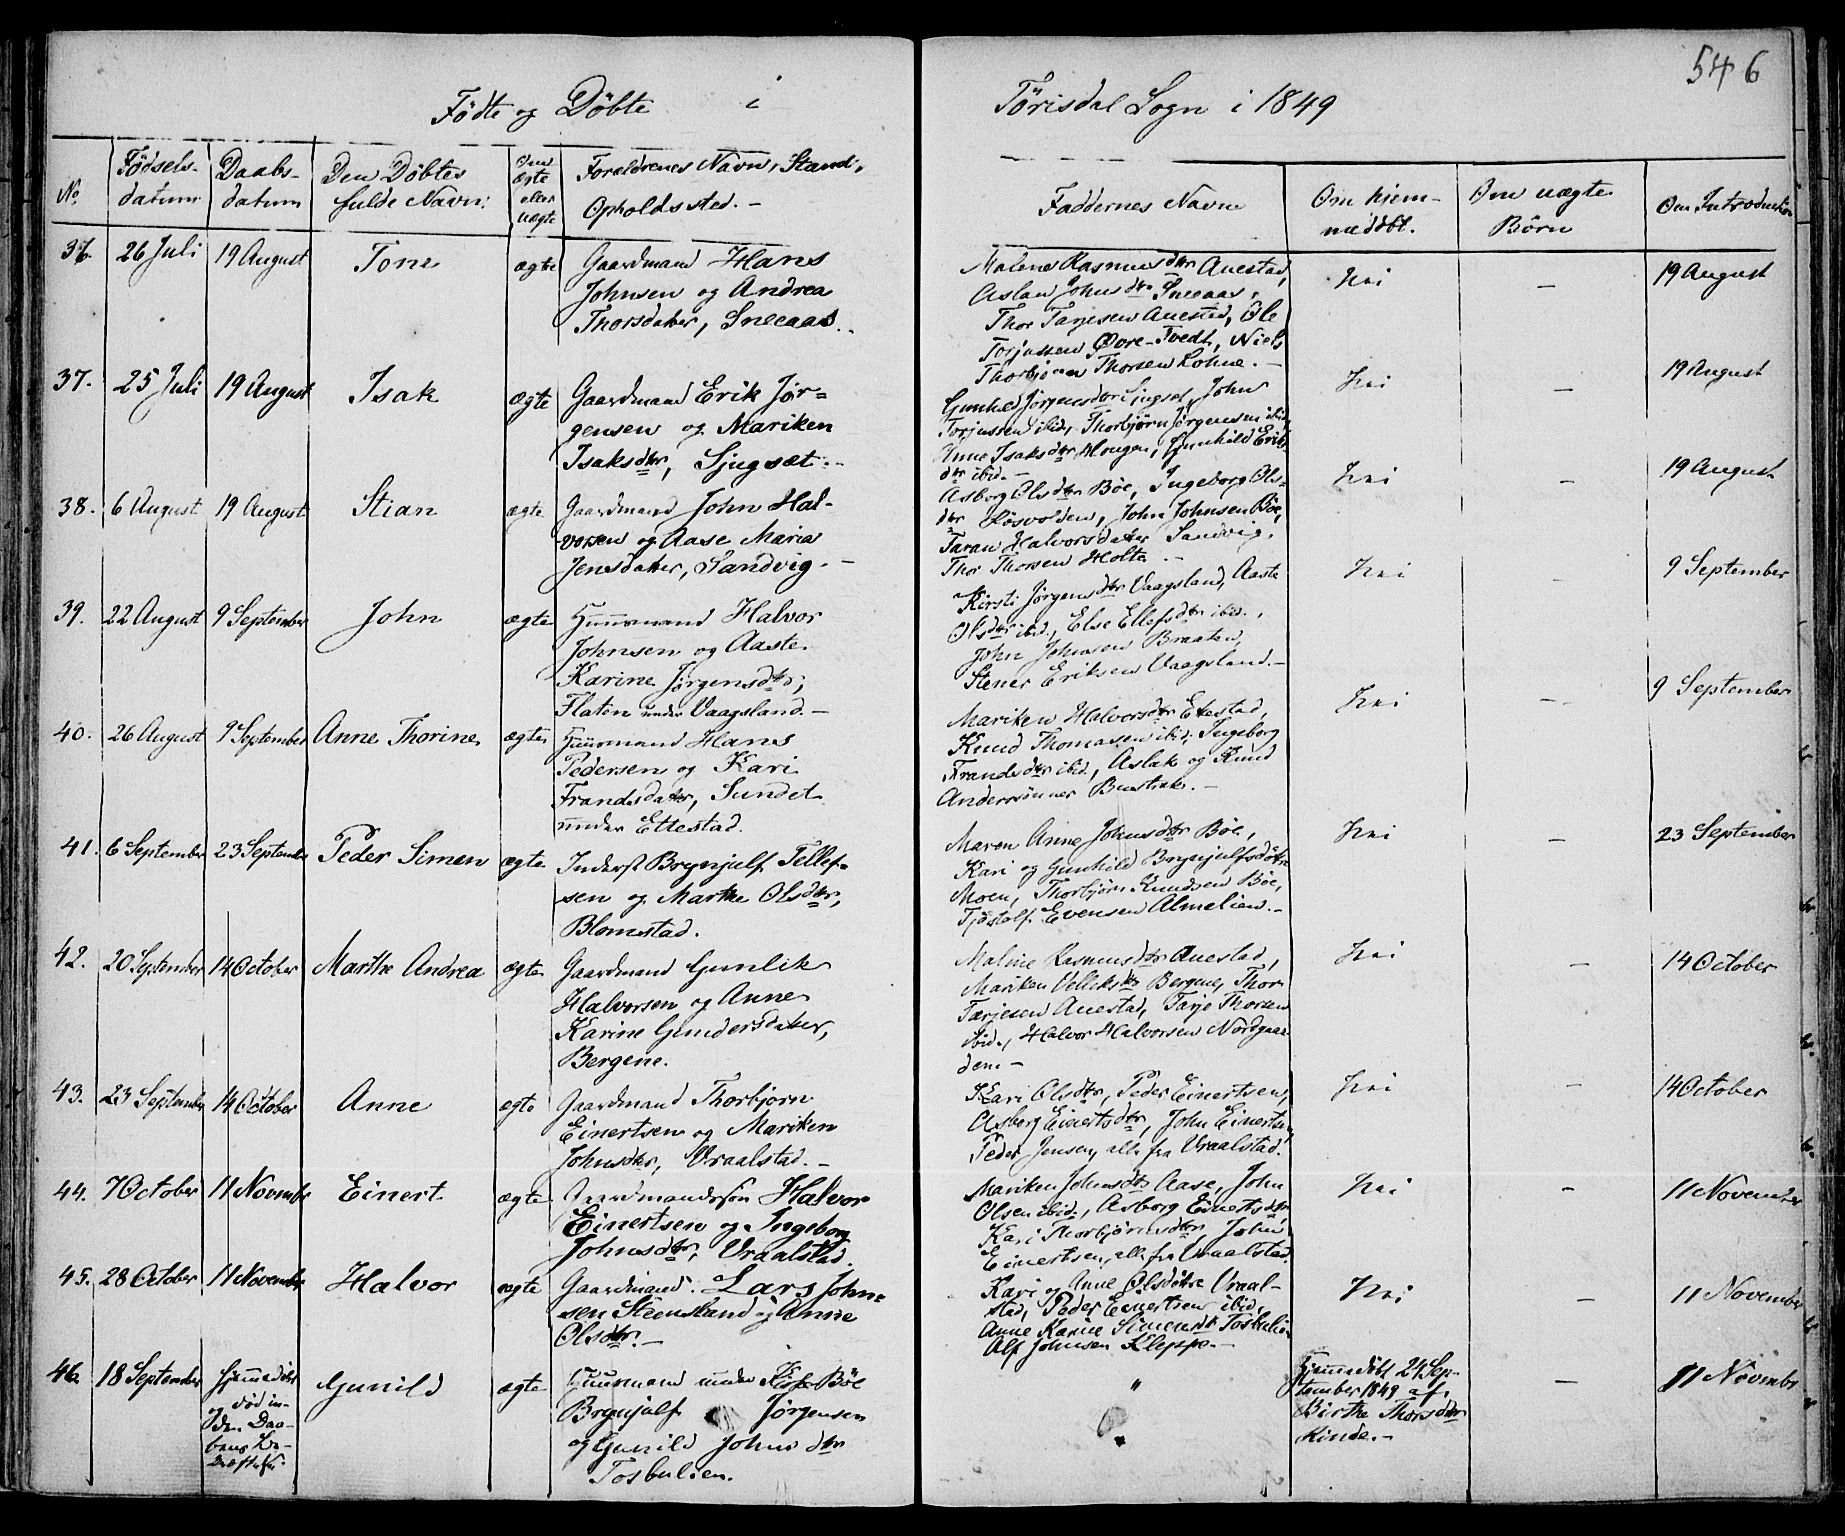 546
Fødte og Døbte i Törisdal Sogn i 1849
No.
Fødsels-
datum
Daabs-
datum
Den Døbtes
fulde Navn.
Om
ægte
eller
uægte
Forældrenes Navn, Stand,
Opholdssted. -
Faddernes Navne
Om hjem-
medøbt.
Om uægte
Børn
Om Introduction
36. 26 Juli 19 August Tone ægte Gaardmand Hans
Johnsen og Andrea
Thorsdatter, Sneaas.
Malene Rasmusdtr Auestad,
Aslau Johnsdtr Sneaas,
Thor Tarjesen Auestad, Ole
Torjussen Øvre-Tvedt, Niels
Thorbjørn Thorsen Lohne. -
Nei
-
19 August
37. 25 Juli 19 August Isak ægte Gaardmand Erik Jør-
gensen og Mariken
Isaksdtr, Sjugsæt. -
Gunhild Jørgensdtr Singset, John
Torjussen ibid, Thorbjörn Jørgensen ibid,
Anne Isaksdtr Mougen, Gunhild Eriks-
dtr ibid. -
Nei
-
19 August
38. 6 August 19 August Stian ægte Gaardmand John Hal-
vorsen og Aase Maria
Jensdatter, Sandvig. -
Asborg Olsdtr Bøe, Ingeborg Ols-
dtr Løsvolden, John Johnsen Bøe,
Taran Halvorsdatter Sandvig,
Thor Thorsen Holte. -
Nei
-
19 August
39. 22 August 9 September John ægte Huusmand Halvor
Johnsen og Aaste
Karine Jørgensdtr,
Flaten under Vaagsland. -
Kirsti Jørgensdtr Vaagsland, Aaste
Olsdtr ibid., Else Ellefsdtr ibid.,
John Johnsen Braaten,
Stener Eriksen Vaagsland. -
Nei
-
9 September
40. 26 August 9 September Anne Thorine ægte Huusmand Hans
Pedersen og Kari
Frandsdatter, Sundet
under Ettestad.
Mariken Halvorsdtr Ettestad,
Knud Thomasen ibid, Ingeborg
Frandsdtr ibid., Aslak og Knud
Anderssønner Bustrak. -
Nei
-
9 September
41. 6 September 23 September Peder Simen ægte Inderst Brynjulf Tellef-
sen og Marthe Olsdtr,
Blomstad.
Maren Anne Johnsdtr Bøe,
Kari og Gunhild Brynjulfsdøtre
Moen, Thorbjörn Knudsen Bøe,
Tjøstolf Evensen Almelien. -
Nei
-
23 September
42. 20 September 14 October Marthe Andrea ægte Gaardmand Gunlik
Halvorsen og Anne
Karine Gundersdatter,
Bergene.
Maline Rasmusdtr Auestad,
Mariken Velleksdtr Bergene, Thor
Tarjesen Auestad, Tarje Thorsen
ibid., Halvor Halvorsen Nordgaar-
den. -
Nei
-
14 October
43. 23 September 14 October Anne ægte Gaardmand Thorbjørn
Einertsen og Mariken
Johnsdtr, Vraalstad. -
Kari Olsdtr, Peder Einertsen,
Asborg Einertsdtr, John Einertsen,
Peder Jensen, alle fra Vraalstad.
Nei
-
14 October
44. 7 October 11 Novembr Einert ægte Gaardmandssøn Halvor
Einertsen og Ingeborg
Johnsdtr, Vraalstad.
Mariken Johnsdtr Aase, John
Olsen ibid., Asborg Einertsdtr
Kari Thorbjørnsdtr John
Einertsen, alle fra Vraalstad.
Nei
-
11 November
45. 28 October 11 November Halvor ægte Gaardmand Lars John-
sen Steensland og Anne
Olsdtr. -
Kari og Anne Olsdøtre Vraal-
stad, Peder Einertsen ibid,
Anne Karine Simensdtr Tosbulien
Alf Johnsen Kleppe. -
Nei
-
11 November
46. 18 September Hjemmedöbt
og död in-
den Daa-
bens Be-
kræftelse.
Gunild ægte Huusmand under Bøe
Brynjulf Jørgensen
og Gunild Johnsdtr
Tosbulien.
"
Hjemmedöbt 24 Sep-
tember 1849 af
Birthe Thorsdtr
Kinde. -
-
11 Novembr